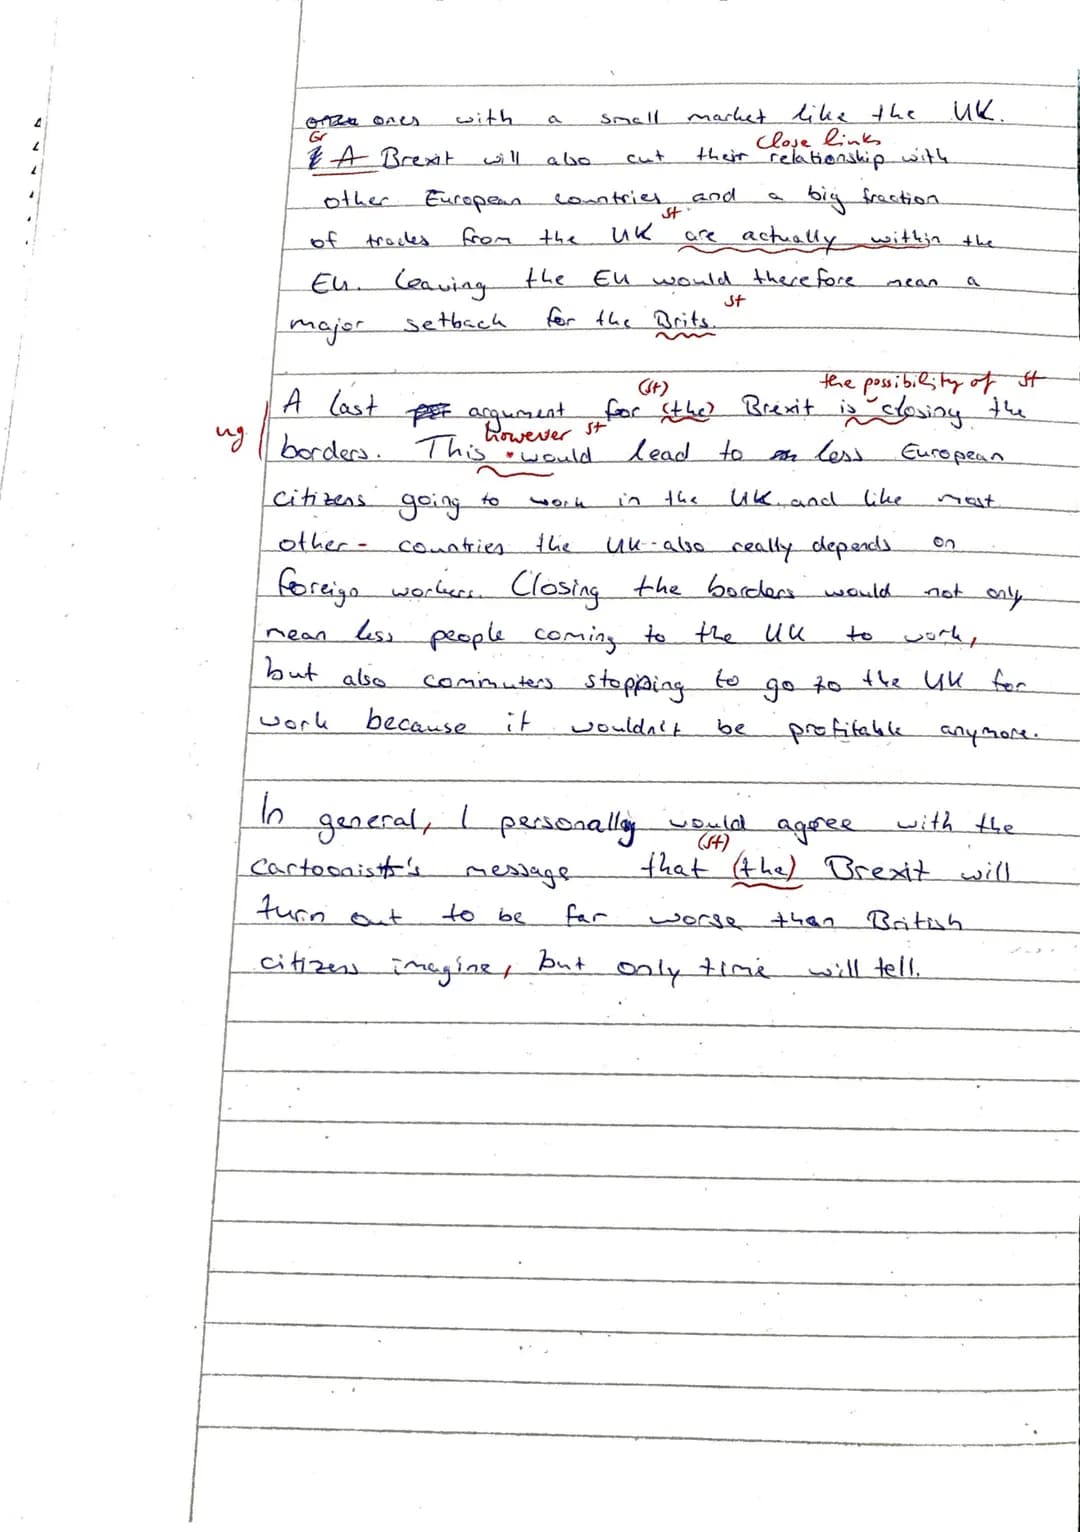 ones with a small market like the UK.
Gr close links
A Brexit will also cut their relationship with
other European countries and a big fraction
st
of trades from the UK are actually within the
EU. Leaving the EU would therefore mean a
st
major setback for the Brits.
(st) the possibility of st
A last argument for (the) Brexit is closing the
ug however st
borders. This would lead to less European
citizens going to work in the UK, and like most
other countries the UK also really depends on
foreign workers. Closing the borders would not only
mean less people coming to the UK to work,
but also commuters stopping to go to the UK for
work because it wouldn't be profitable anymore.
In general, I personally would agree with the
(st)
cartoonist's message that (the) Brexit will
turn out to be far worse than British
citizens imagine, but only time will tell.